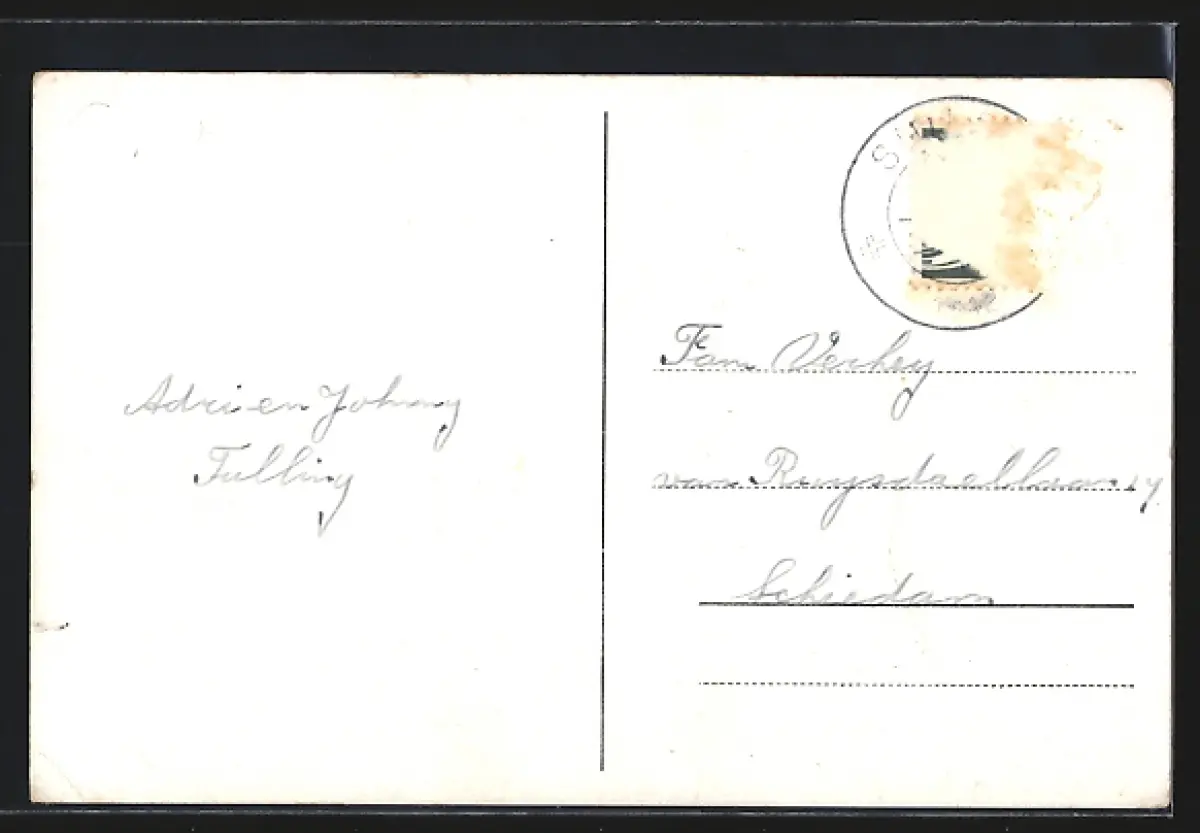 Adri en Johnny
Fam Verhey
van Ruysdaellaan 14
Schiedam